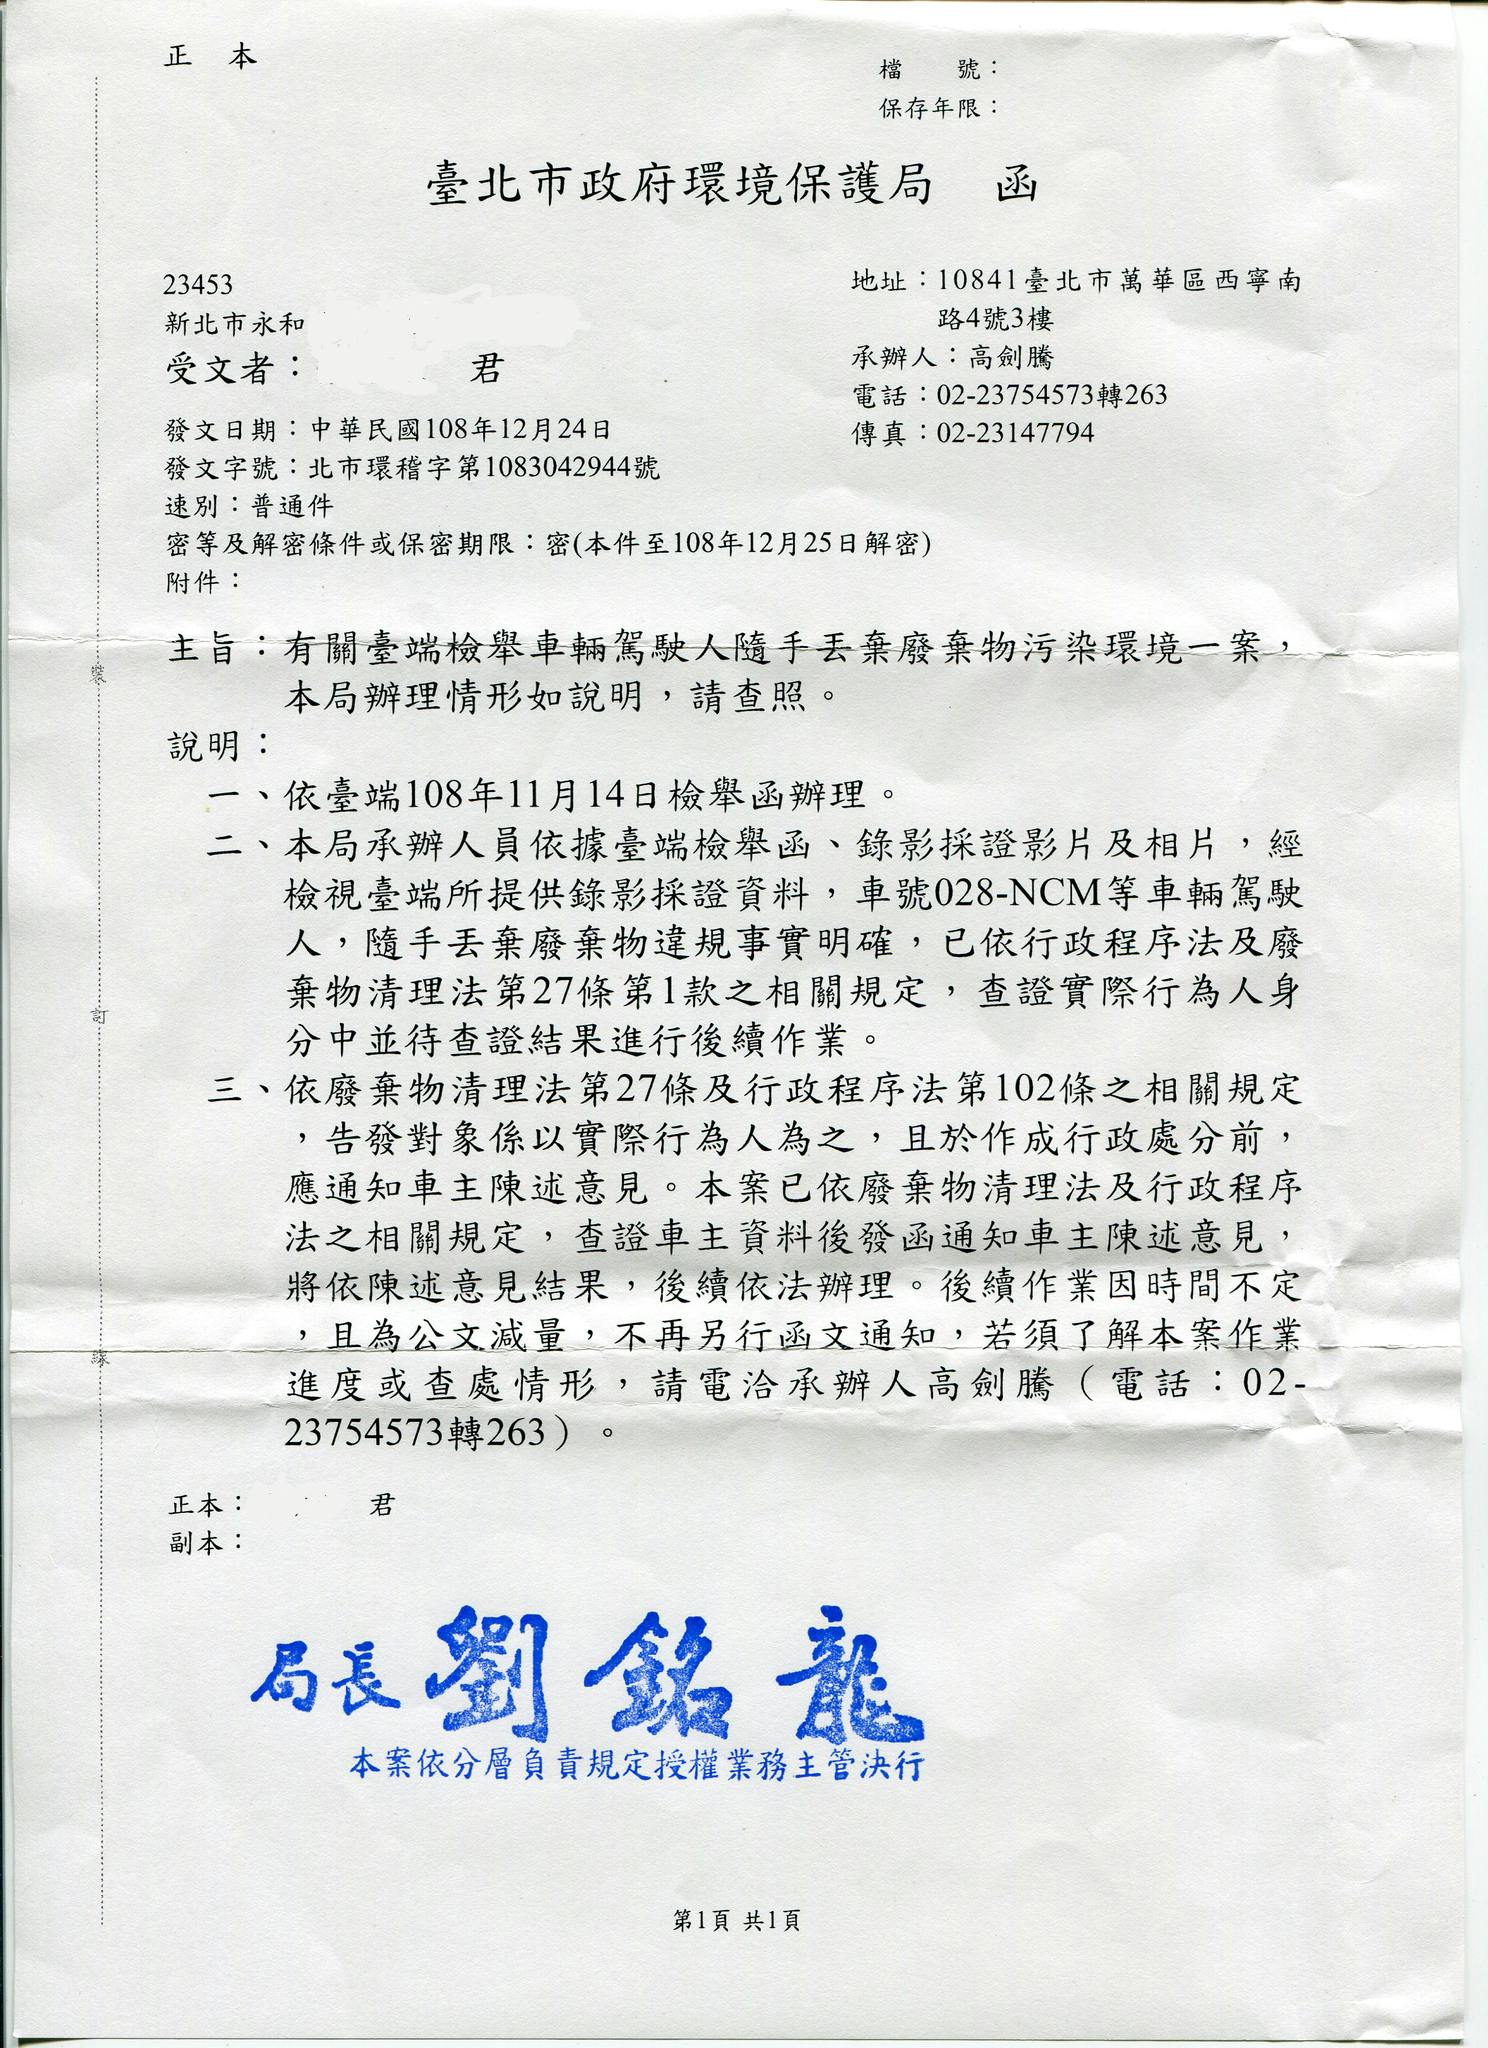 正　本
檔　　號：
保存年限：
臺北市政府環境保護局　函
23453
新北市永和
受文者：　　　　君
地址：10841臺北市萬華區西寧南
路4號3樓
承辦人：高劍騰
電話：02-23754573轉263
傳真：02-23147794
發文日期：中華民國108年12月24日
發文字號：北市環稽字第1083042944號
速別：普通件
密等及解密條件或保密期限：密(本件至108年12月25日解密)
附件：
主旨：有關臺端檢舉車輛駕駛人隨手丟棄廢棄物污染環境一案，
本局辦理情形如說明，請查照。
說明：
一、依臺端108年11月14日檢舉函辦理。
二、本局承辦人員依據臺端檢舉函、錄影採證影片及相片，經
檢視臺端所提供錄影採證資料，車號028-NCM等車輛駕駛
人，隨手丟棄廢棄物違規事實明確，已依行政程序法及廢
棄物清理法第27條第1款之相關規定，查證實際行為人身
分中並待查證結果進行後續作業。
三、依廢棄物清理法第27條及行政程序法第102條之相關規定
，告發對象係以實際行為人為之，且於作成行政處分前，
應通知車主陳述意見。本案已依廢棄物清理法及行政程序
法之相關規定，查證車主資料後發函通知車主陳述意見，
將依陳述意見結果，後續依法辦理。後續作業因時間不定
，且為公文減量，不再另行函文通知，若須了解本案作業
進度或查處情形，請電洽承辦人高劍騰（電話：02-
23754573轉263）。
正本：　　　　君
副本：
局長 劉銘龍
本案依分層負責規定授權業務主管決行
第1頁 共1頁
裝
訂
線